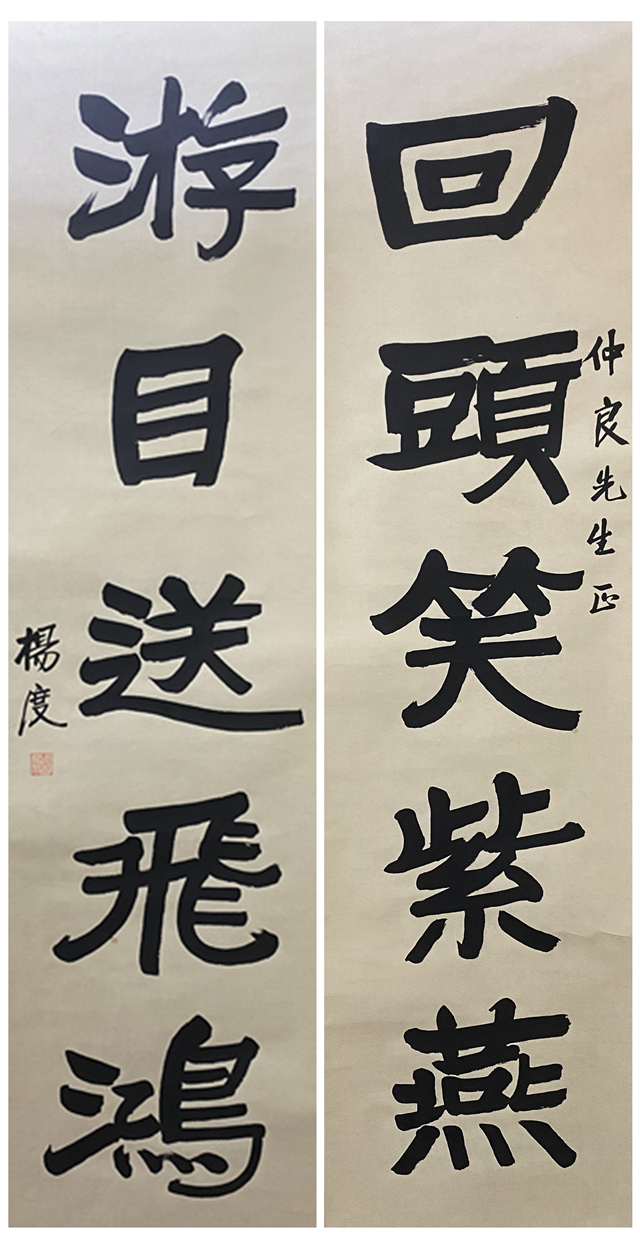 仲良先生正
回頭笑紫燕
游目送飛鴻
楊度